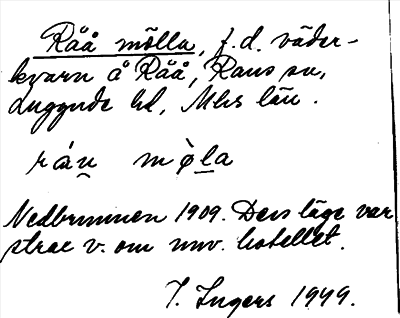 Råå mölla, f.d. väder-
kvarn å Råå, Raus sn,
Luggude hd, Mhs län.
ráu mø̀la
Nedbrunnen 1909. Dess läge var
strax v. om nuv. hotellet.
I. Ingers 1949.